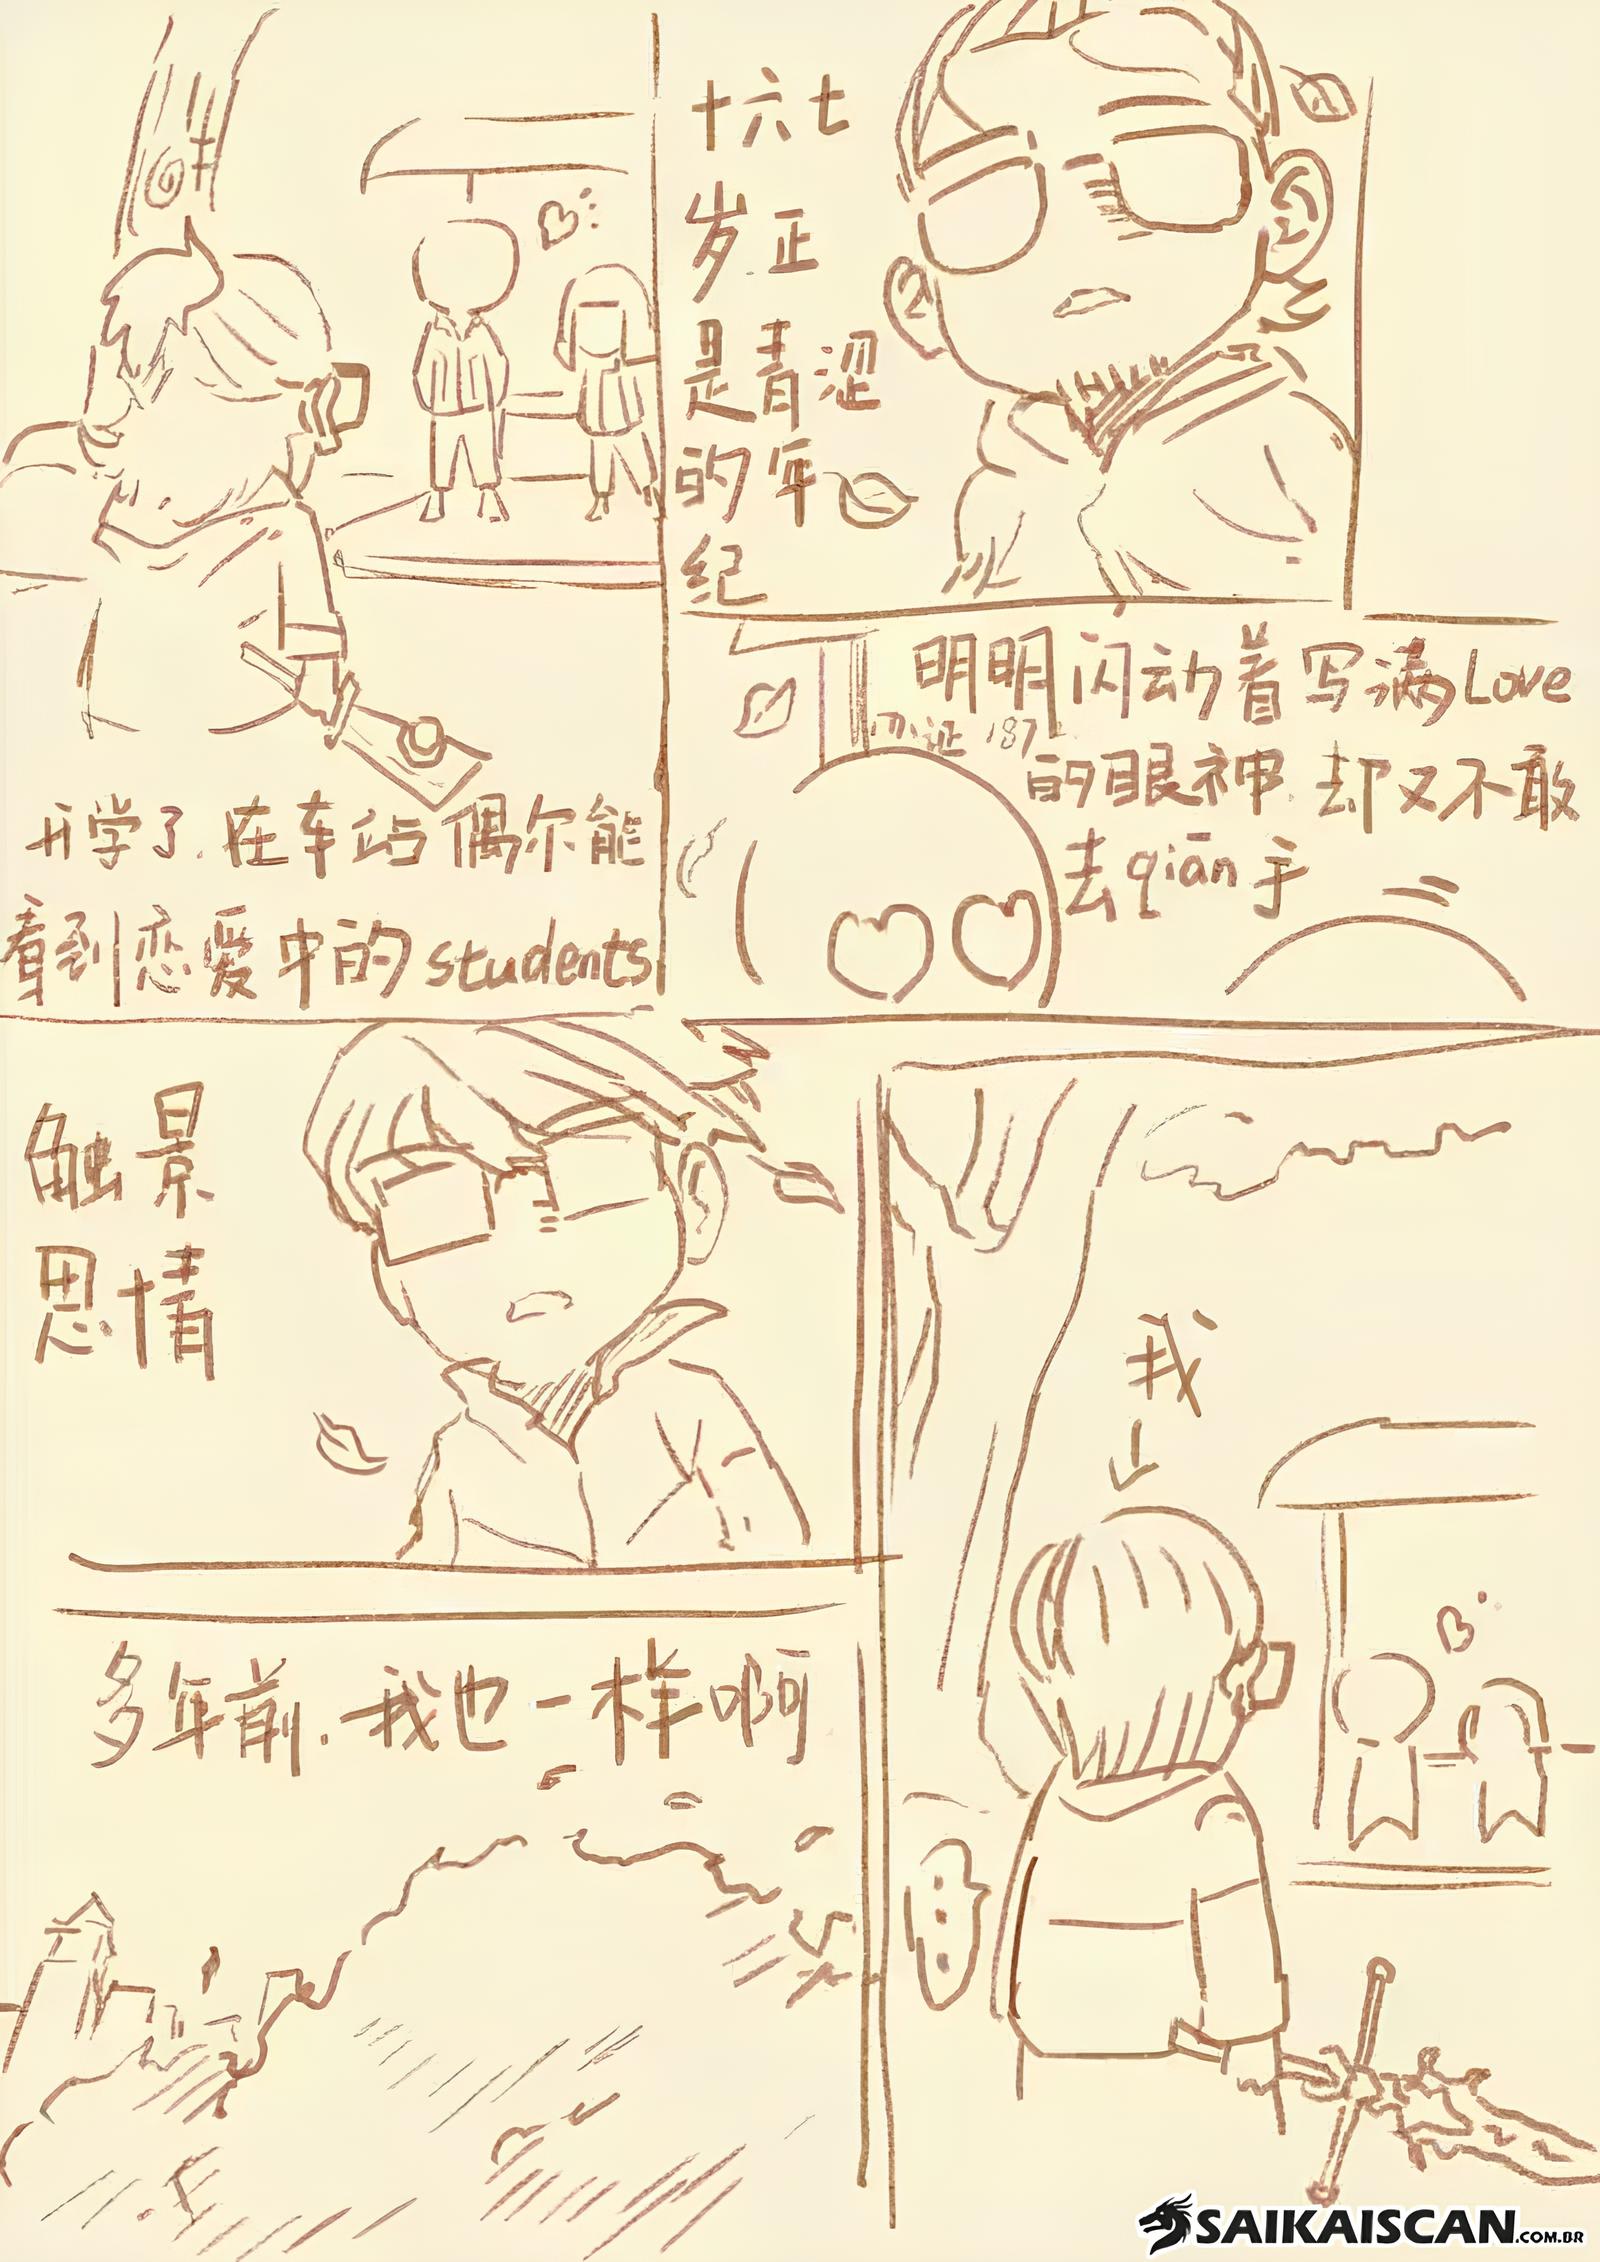 开学了.在车站偶尔能
看到恋爱中的students
十六七
岁.正
是青涩
的年
纪
明明闪动着写满Love
的眼神.却又不敢
去qiān手
触景
思情
我
多年前.我也一样啊
SAIKAISCAN.COM.BR